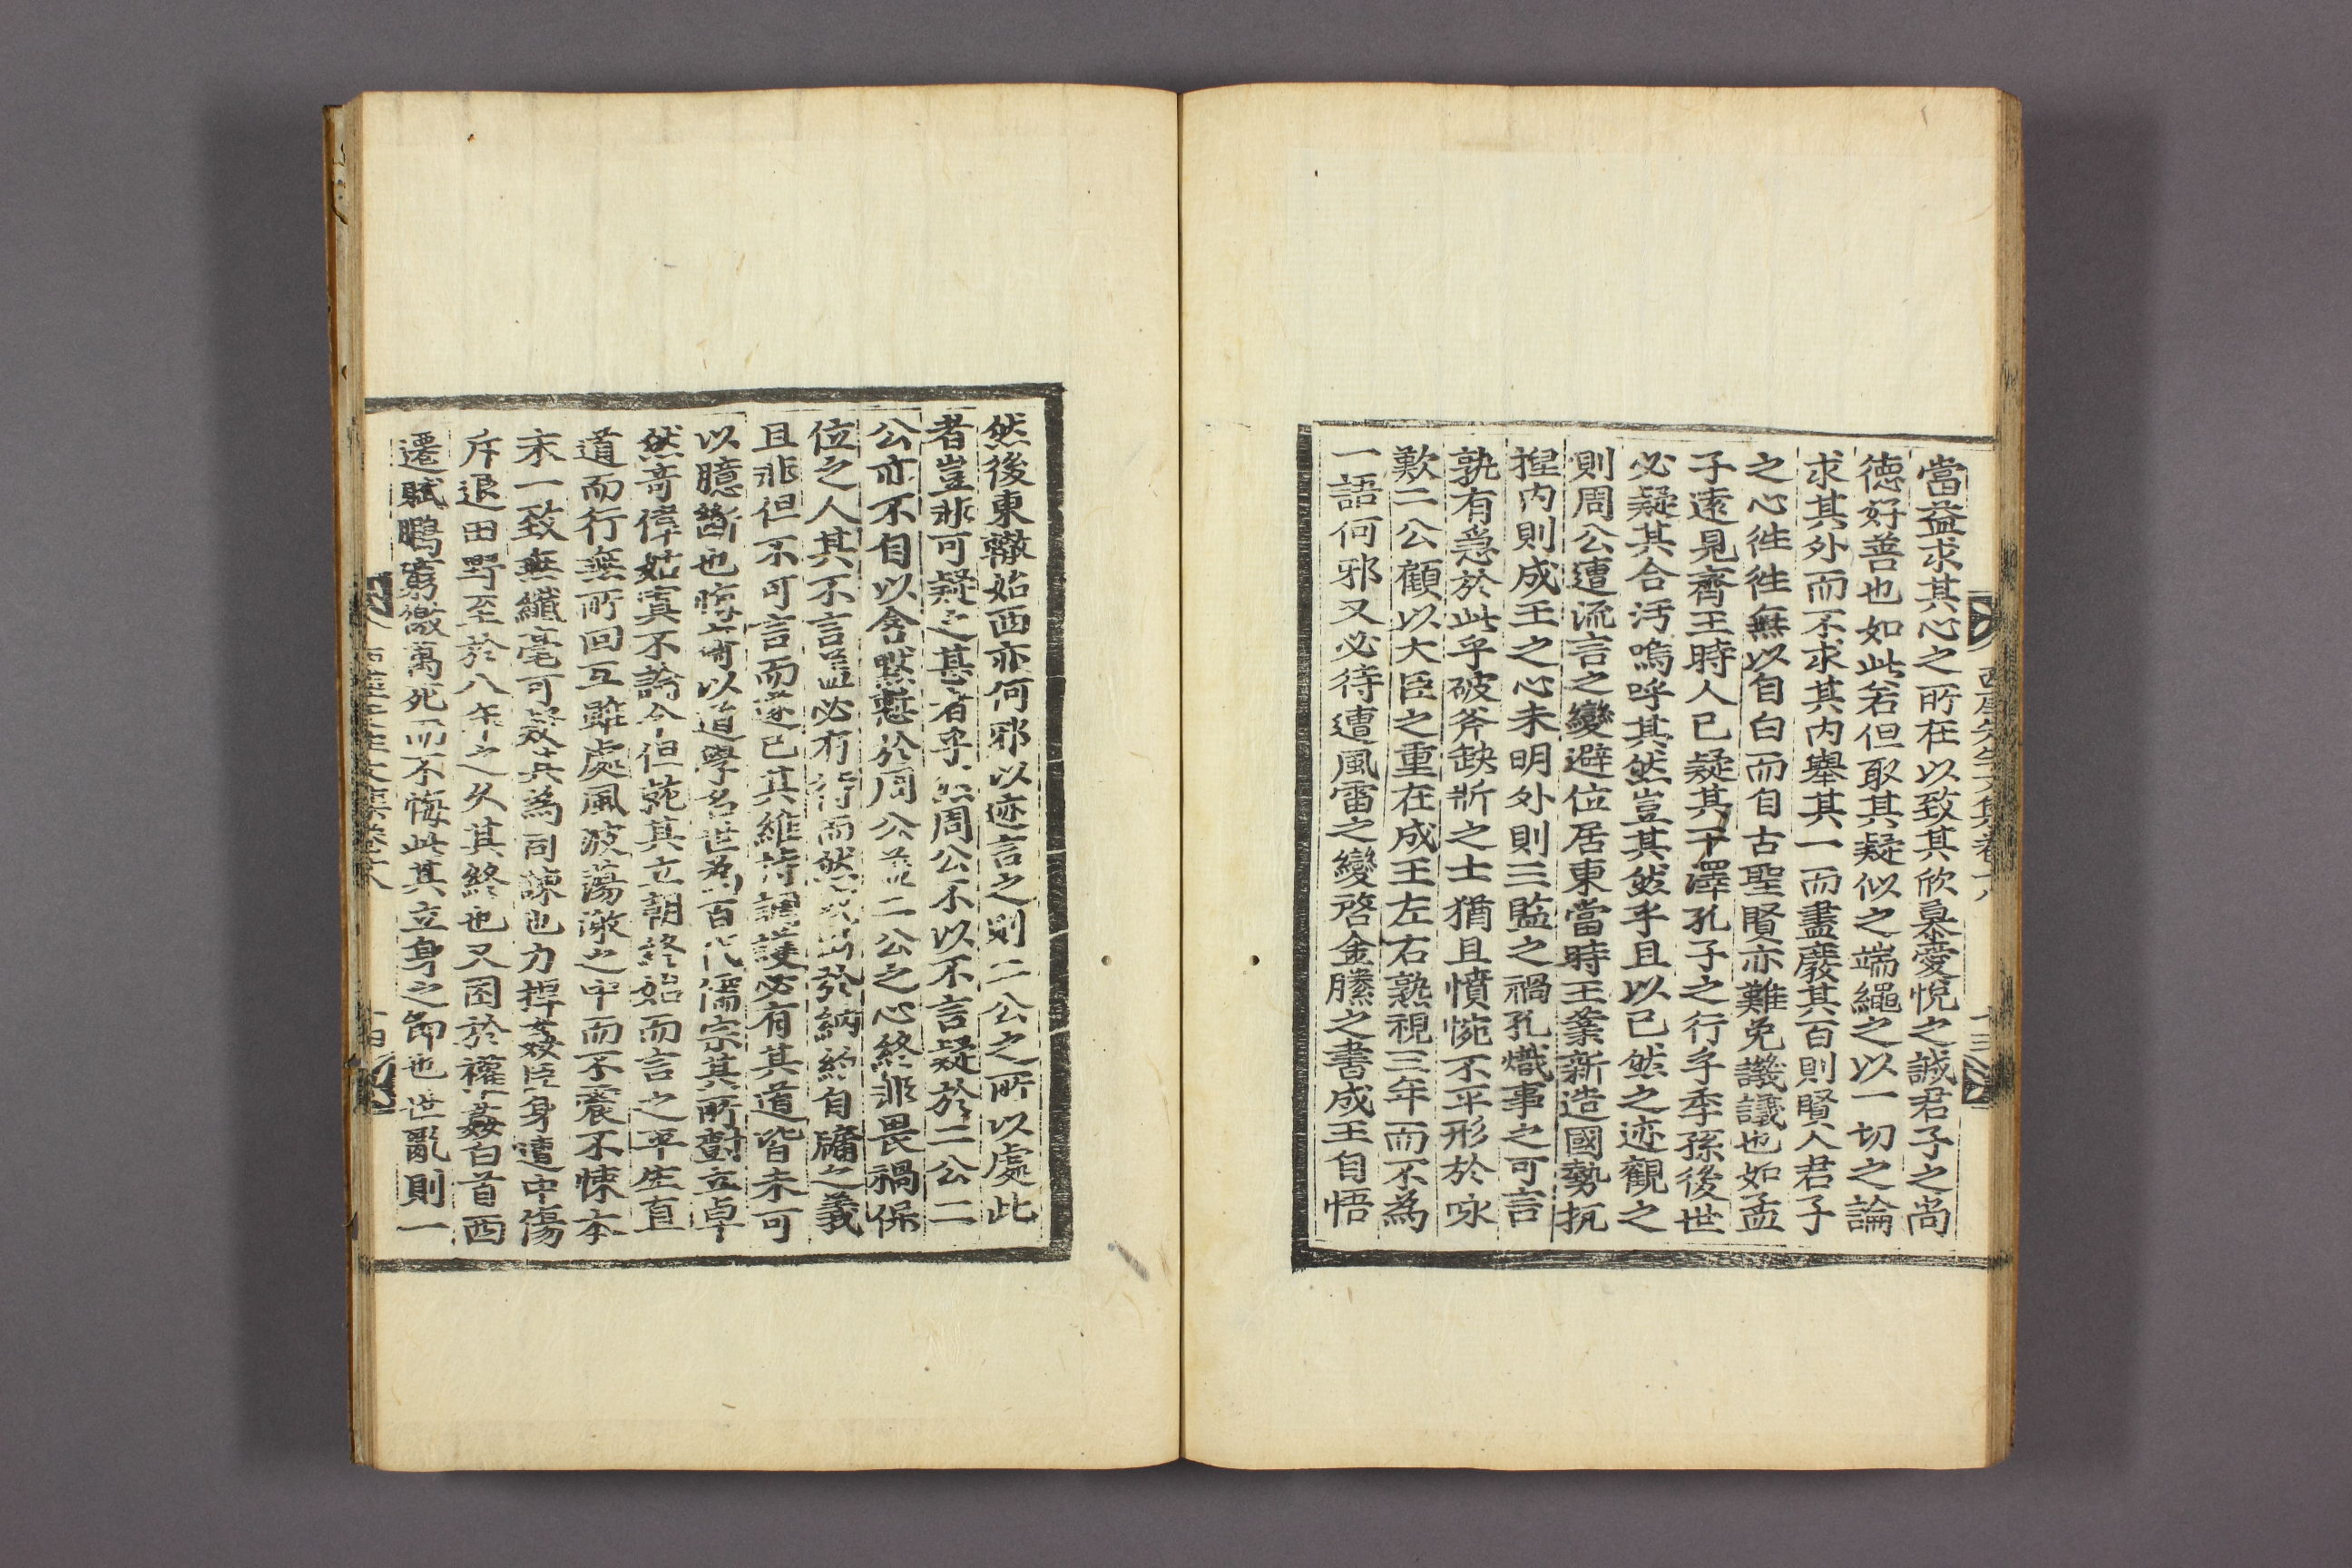 當益求其心之所在以致其欣慕愛悅之誠君子之尚
德好善也如此若但取其疑似之端繩之以一切之論
求其外而不求其內擧其一而盡廢其百則賢人君子
之心徃徃無以自白而自古聖賢亦難免譏議也如孟
子遠見齊王時人已疑其干澤孔子之行乎季孫後世
必疑其合汚嗚呼其然豈其然乎且以已然之迹觀之
則周公遭流言之變避位居東當時王業新造國勢扤
揑內則成王之心未明外則三監之禍孔熾事之可言
孰有急於此乎破斧缺斨之士猶且憤惋不平形於咏
歎二公顧以大臣之重在成王左右熟視三年而不為
一語何邪又必待遭風雷之變啓金縢之書成王自悟
然後東轍始西亦何邪以迹言之則二公之所以處此
者豈非可疑之甚者乎然周公不以不言疑於二公二
公亦不自以含默慙於周公盖二公之心終非畏禍保
位之人其不言盖必有待而然或出於納約自牖之義
且非但不可言而遂已其維持調護必有其道皆未可
以臆斷也晦齋以道學名世為百代儒宗其所樹立卓
然奇偉姑寘不論今但就其立朝終始而言之平生直
道而行無所回互雖處風波蕩潏之中而不震不悚本
末一致無纖毫可疑其為司諫也力排姦臣身遭中傷
斥退田野至於八年之久其終也又困於權姦白首西
遷賦鵩窮徼萬死而不悔此其立身之節也世亂則一
西厓先生文集卷十八
十三